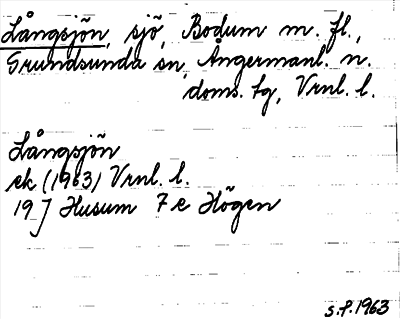 Långsjön, sjö, Bodum m. fl.,
Grundsunda sn, Ångermanl. n.
doms. tg, Vrnl. l.
Långsjön
ek (1963) Vrnl. l.
19 J Husum 7 e Högen
S.F. 1963